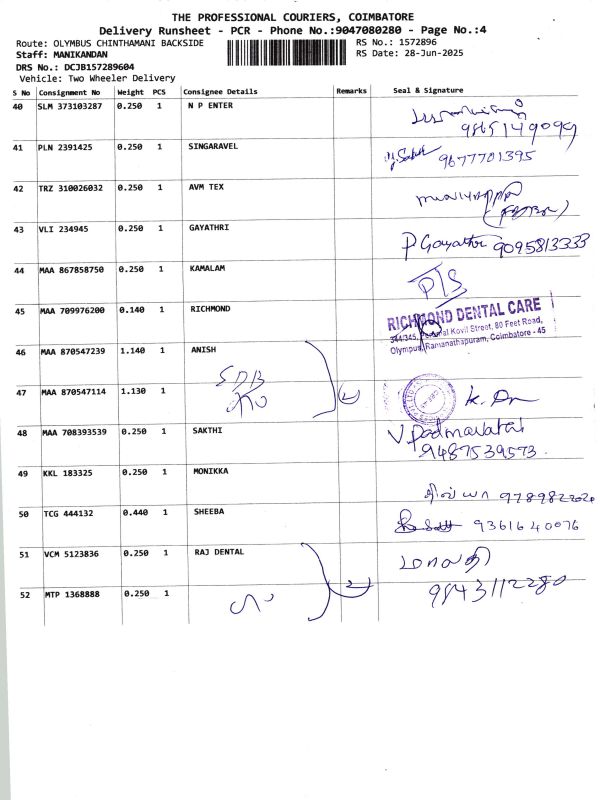 THE PROFESSIONAL COURIERS, COIMBATORE
Delivery Runsheet - PCR - Phone No.:9047080280 - Page No.:4
Route: OLYMBUS CHINTHAMANI BACKSIDE RS No.: 1572896
Staff: MANIKANDAN RS Date: 28-Jun-2025
DRS No.: DCJB157289604
Vehicle: Two Wheeler Delivery
S No Consignment No Weight PCS Consignee Details Remarks Seal & Signature
40 SLM 373103287 0.250 1 N P ENTER
9865149099
41 PLN 2391425 0.250 1 SINGARAVEL 9677701395
42 TRZ 310026032 0.250 1 AVM TEX
43 VLI 234945 0.250 1 GAYATHRI P Gayathri 9095813333
44 MAA 867858750 0.250 1 KAMALAM P/S
45 MAA 709976200 0.140 1 RICHMOND RICHMOND DENTAL CARE
344/345, Perumal Kovil Street, 80 Feet Road,
Olympus, Ramanathapuram, Coimbatore - 45
46 MAA 870547239 1.140 1 ANISH
47 MAA 870547114 1.130 1
48 MAA 708393539 0.250 1 SAKTHI V Padmavathi
9487539573
49 KKL 183325 0.250 1 MONIKKA
50 TCG 444132 0.440 1 SHEEBA 9361640076
51 VCM 5123836 0.250 1 RAJ DENTAL மாலதி
52 MTP 1368888 0.250 1 9843112280